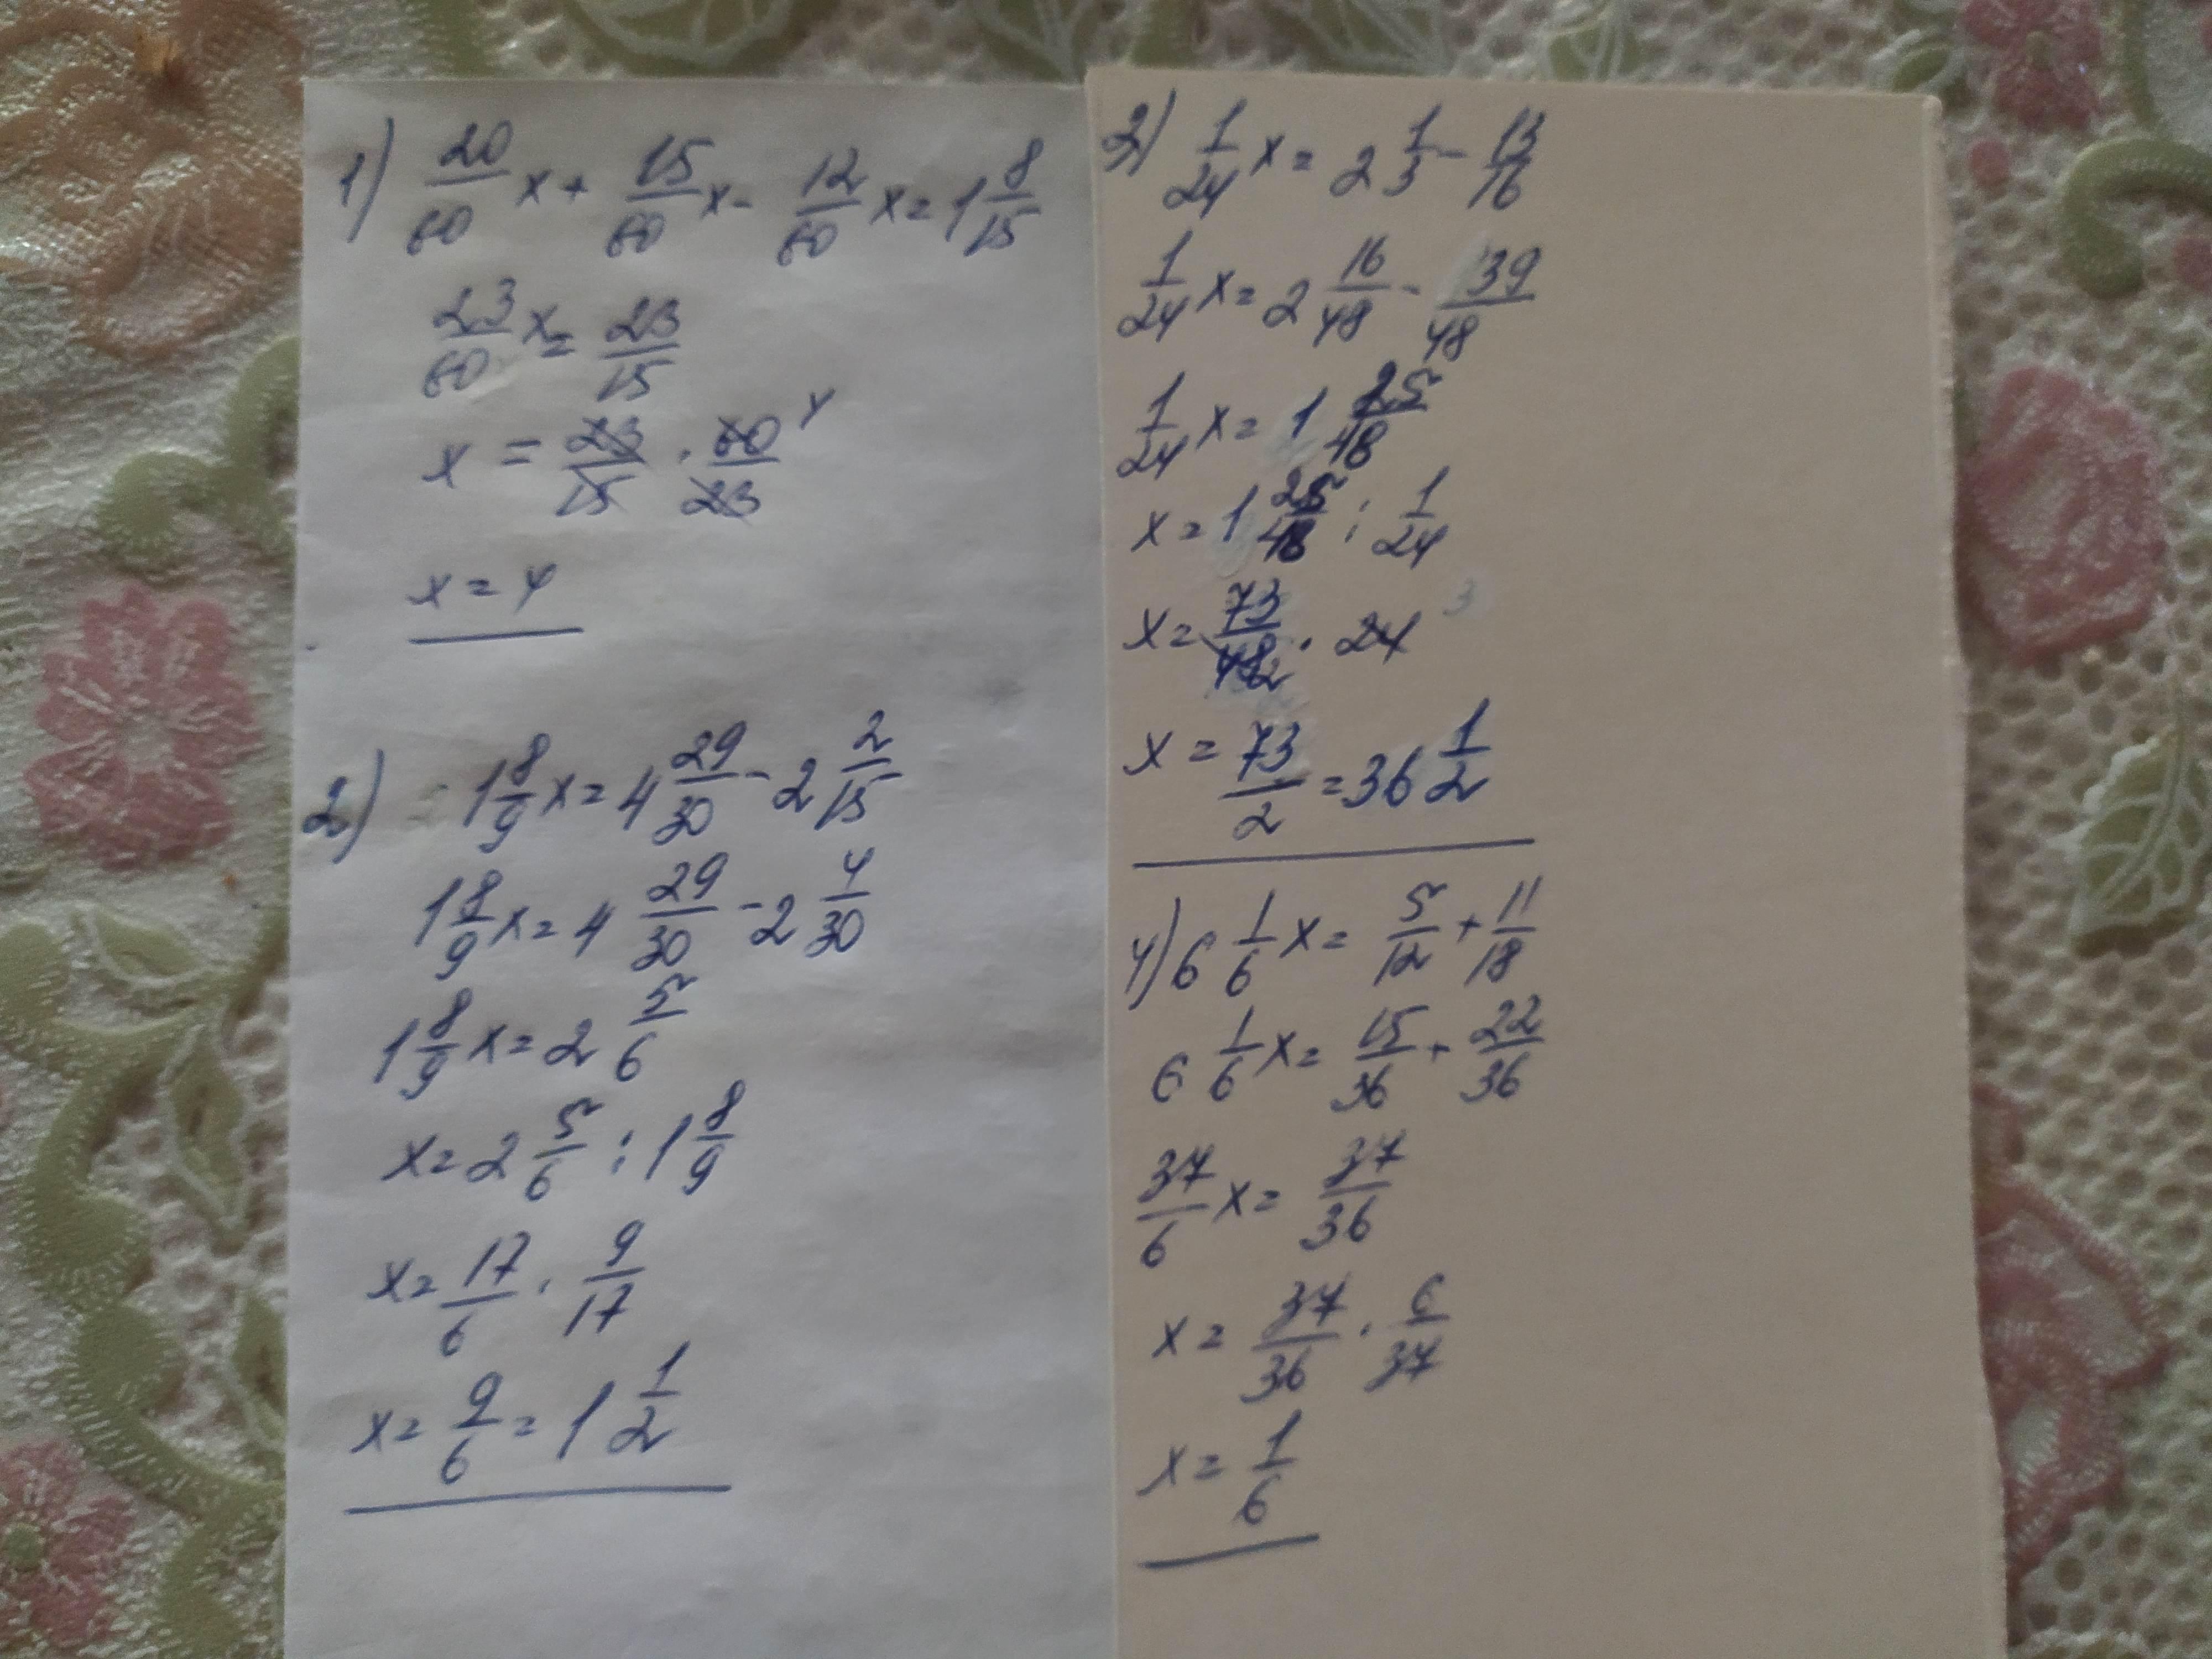 1) 20/60 x + 15/60 x - 12/60 x = 1 8/15
23/60 x = 23/15
x = 23/15 · 60/23 4
x = 4
2) 1 8/9 x = 4 29/30 - 2 2/15
1 8/9 x = 4 29/30 - 2 4/30
1 8/9 x = 2 5/6
x = 2 5/6 : 1 8/9
x = 17/6 · 9/17
x = 9/6 = 1 1/2
3) 1/24 x = 2 1/3 - 13/16
1/24 x = 2 16/48 - 39/48
1/24 x = 1 25/48
x = 1 25/48 : 1/24
x = 73/48 2 · 24
x = 73/2 = 36 1/2
4) 6 1/6 x = 5/12 + 11/18
6 1/6 x = 15/36 + 22/36
37/6 x = 37/36
x = 37/36 · 6/37
x = 1/6